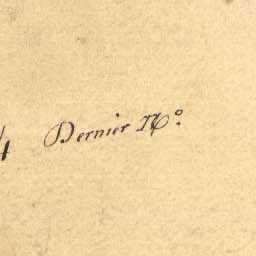 4 Dernier N°.